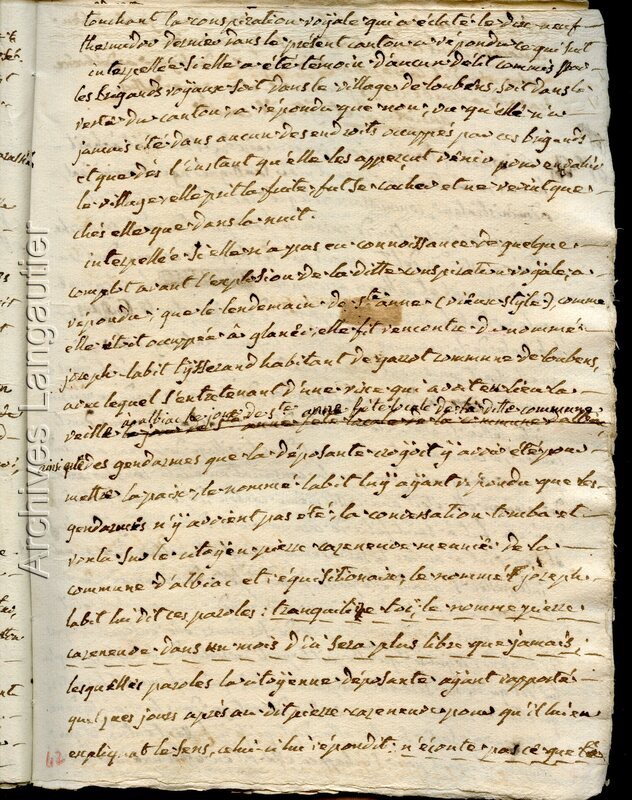 touchant la conspiration royale qui a éclaté le dix neuf
thermidor dernier dans le présent canton a répondu ce qui suit
interpellée si elle a été témoin d'aucun delit commis par
les brigands royaux soit dans le village de loubens, soit dans le
reste du canton, a répondu que non, vu qu'elle n'a
jamais été dans aucun des endroits occuppés par ces brigands
et que dès l'instant qu'elle les apperçut venir pour envahir
le village elle prit la fuite fut se cacher et ne revint que
chés elle que dans la nuit.
interpellée si elle n'a pas eu connoissance de quelque
complot avant l'explosion de la ditte conspiration royale, a
répondu que le lendemain de ste anne (vieux style), comme
elle étoit occuppée à glaner, elle fit rencontre du nommé
joseph labit tisserand habitant de commune de loubens,
avec lequel s'entretenant d'une rixe qui avoit eu lieu la
veille à albiac le jour de ste anne fete locale de la ditte commune
ainsi que des gendarmes que la déposante croyoit y avoir été pour
mettre la paix, le nommé labit luy ayant répondu que les
gendarmes n'y avoient pas été, la conversation tomba et
roula sur le citoyen pierre cazeneuve de la
commune d'albiac et réquisitionaire, le nommé joseph
labit lui dit ces paroles: tranquilise toi, le nommé pierre
cazeneuve dans un mois d'ici sera plus libre que jamais,
lesquelles paroles la citoyenne déposante ayant rapporté
quelques jours après au dit pierre cazeneuve pour qu'il lui en
expliquat le sens, celui-ci lui répondit: n'écoute pas ce que
42
Archives Langautier